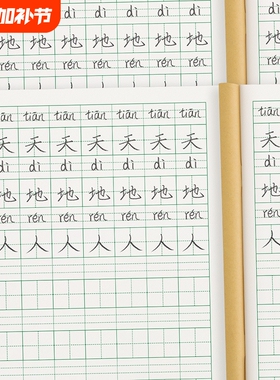 加补节
dì dì dì dì
地 地 地 地 地
rén rén rén rén rén rén
tiān tiān tiān tiān tiān tiān
天 天 天 天 天 天 天
dì dì dì dì dì dì dì
地 地 地 地 地 地 地
rén rén rén rén rén rén rén
人 人 人 人 人 人 人
dì
地
rén
tiān
天
dì
地
rén
人